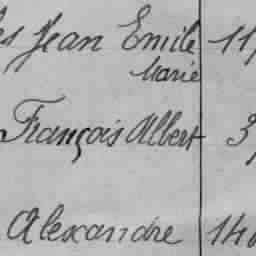 Jean Emile 11
Marie
François Albert 3
Alexandre 14